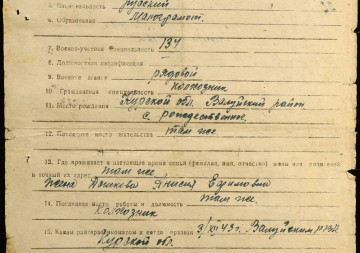 5. Национальность русский
6. Образование малограмот.
7. Военно-учетная специальность 134
8. Должностная квалификация
9. Военное звание рядовой
10. Гражданская специальность колхозник
11. Место рождения Курской обл. Валуйский район
с. Рождественное.
12. Последнее место жительства там же
13. Где проживает в настоящее время семья (фамилия, имя, отчество) жены или родителей
и точный их адрес там же
жена Анисия Ефимовна
14. Последнее место работы и должность там же.
колхозник
15. Каким райгорвоенкоматом и когда призван 3/XI 43 г. Валуйским РВК
Курской обл.